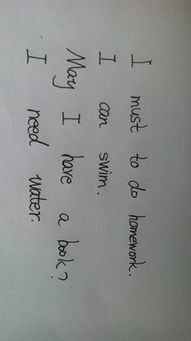 I must to do homework.
I can swim.
May I have a book?
I need water.